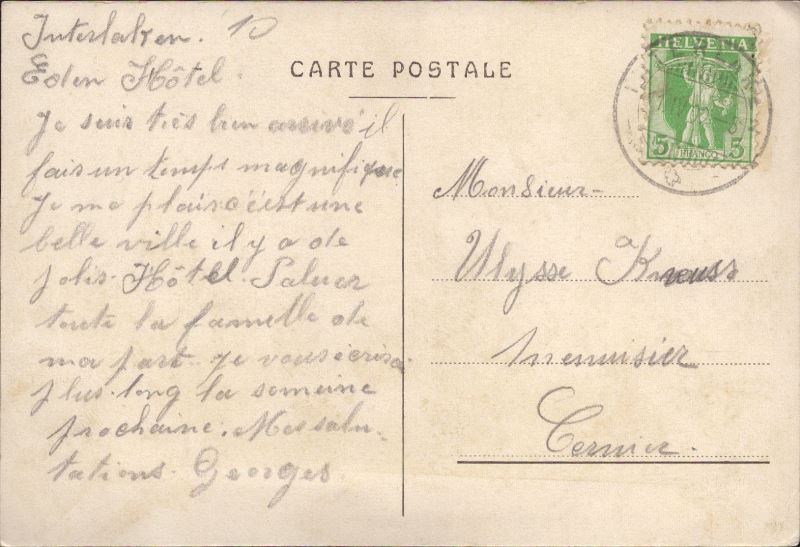 Interlaken. 10
Eden Hôtel.
Je suir très bien arrivé il
fais un temps magnifique
Je ma plais c'est une
belle ville il y a de
jolis. Hôtel. Saluer
toute la famelle de
ma part. je vous écrirai
plus. long la semeine
prochaine. Mes salu-
tations. Georges
CARTE POSTALE
HELVETIA
5 5
FRANCO
Monsieur-
Ulysse
menuisier
Cernier.